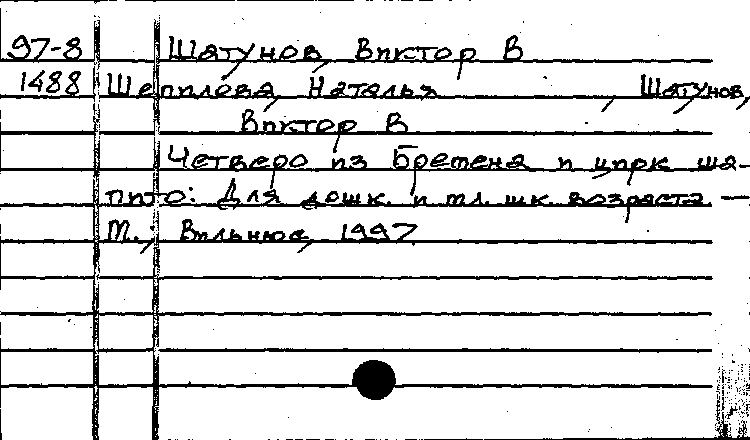 97-8 Шатунов, Виктор В
1488 Шепилова, Наталья , Шатунов,
Виктор В
Четверо из Бремена и цирк ша-
пито: Для дошк. и мл. шк. возраста. —
М.; Вильнюс, 1997